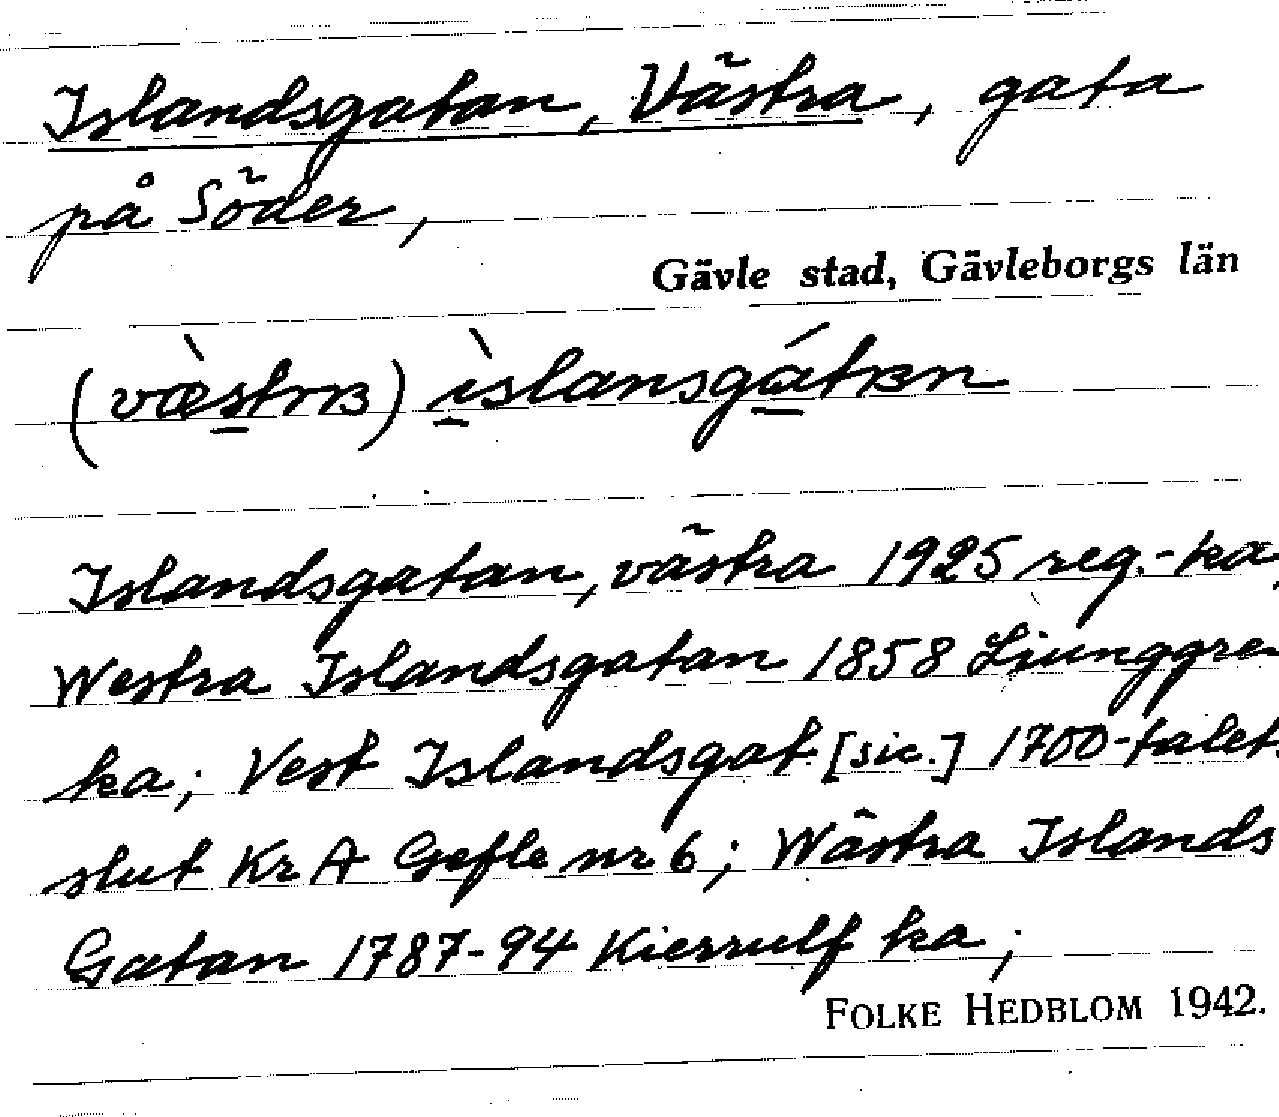 Islandsgatan, Västra, gata
på Söder,
Gävle stad, Gävleborgs län
(væ̀strɐ) ìslansgátɐn
Islandsgatan, västra 1925 reg.-ka,
Westra Islandsgatan 1858 Ljunggre
ka; Vest Islandsgat. [sic.] 1700-talet
slut Kr A Gefle nr 6; Wästra Islands
Gatan 1787-94 Kierrulf ka;
FOLKE HEDBLOM 1942.